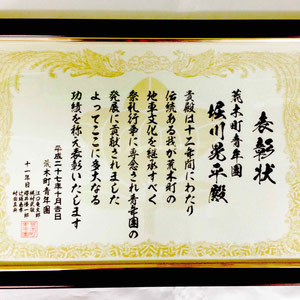 表彰状
荒木町青年團
堀川晃平殿
貴殿は十二年間にわたり
伝統ある我が荒木町の
地車文化を継承すべく
祭礼行事に専念され青年團の
発展に貢献されました
よってここに多大なる
功績を称え表彰いたします
平成二十七年十月吉日
荒木町青年團
十一年目